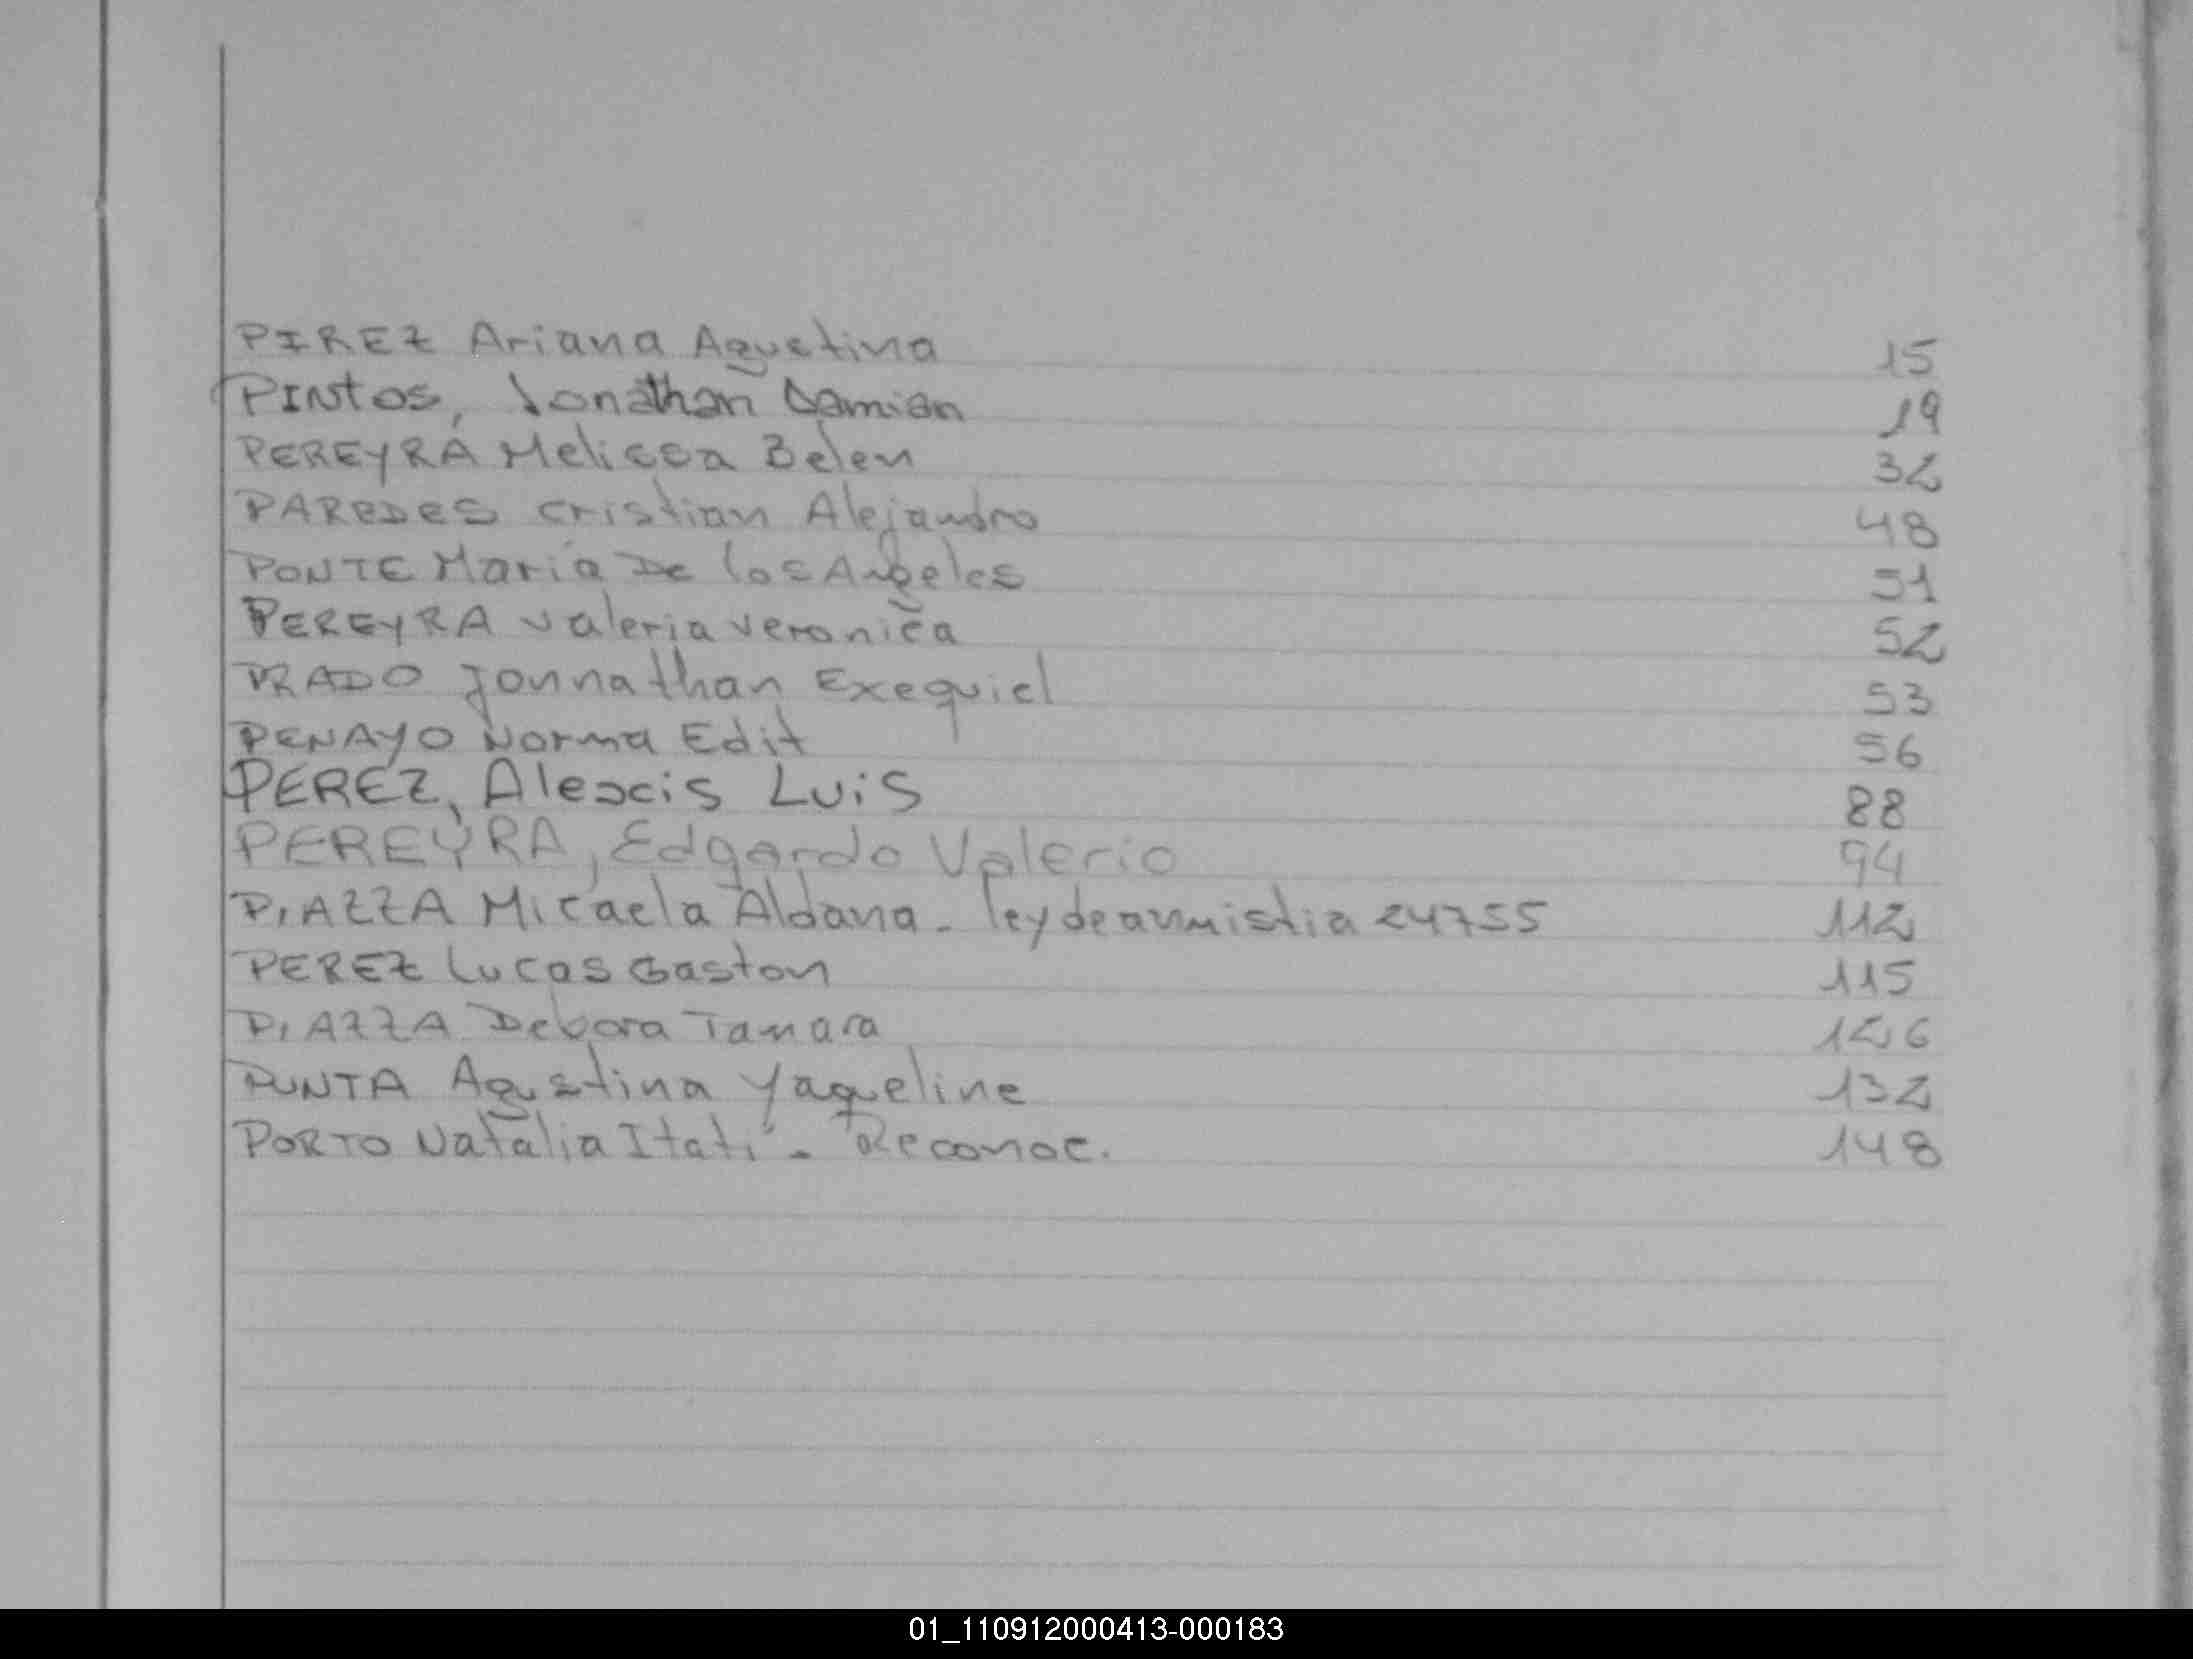 PIREZ Ariana Agustina 15
PINtos, Jonathan Damian 19
PEREYRA Melissa Belen 32
PAREDES Cristian Alejandro 48
PONTE María De los Angeles 51
PEREYRA Valeria Veronica 52
PRADO Jonnathan Exequiel 53
PENAYO Norma Edit 56
PEREZ, Alexcis Luis 88
PEREYRA, Edgardo Valerio 94
PIAZZA Micaela Aldana - ley de anmistia 24755 112
PEREZ Lucas Gaston 115
PIAZZA Debora Tamara 126
PUNTA Agustina Yaqueline 132
PORTO Natalia Itatí - Reconoc. 148
01_110912000413-000183